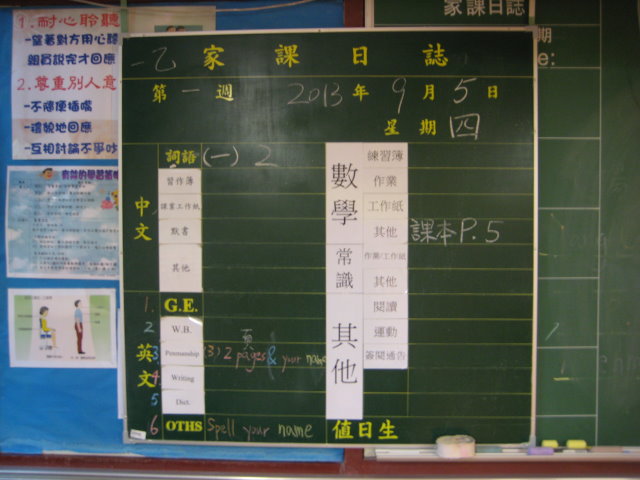 1.耐心聆聽
-望著對方用心聽
組員說完才回應
2.尊重別人意
-不隨便插嘴
-禮貌地回應
-互相討論不爭吵
家課日誌
期
e:
一乙 家課日誌
第一週 2013年9月5日
星期四
中文
詞語 (一) 2
習作簿
課業工作紙
默書
其他
英文
1. G.E.
2 W.B.
3 Penmanship (3) 2 pages & your name
頁
4 Writing
5 Dict.
6 OTHS Spell your name
數學
練習簿
作業
工作紙
其他 課本 P.5
常識
作業/工作紙
其他
其他
閱讀
運動
簽閱通告
值日生